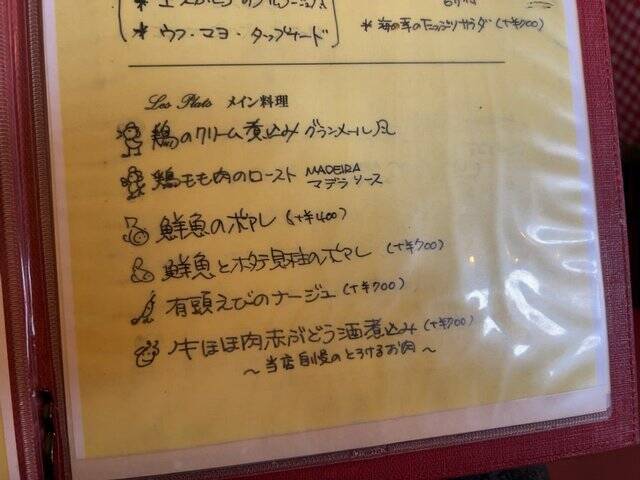 * ウフ・マヨ・タップナード
* 海の幸のたっぷりサラダ (+¥700)
Les Plats メイン料理
鶏のクリーム煮込み グランメール風
鶏もも肉のロースト MADEIRA マデラソース
鮮魚のポワレ (+¥400)
鮮魚とホタテ貝柱のポワレ (+¥700)
有頭えびのナージュ (+¥700)
牛ほほ肉赤ぶどう酒煮込み (+¥700)
〜当店自慢のとろけるお肉〜